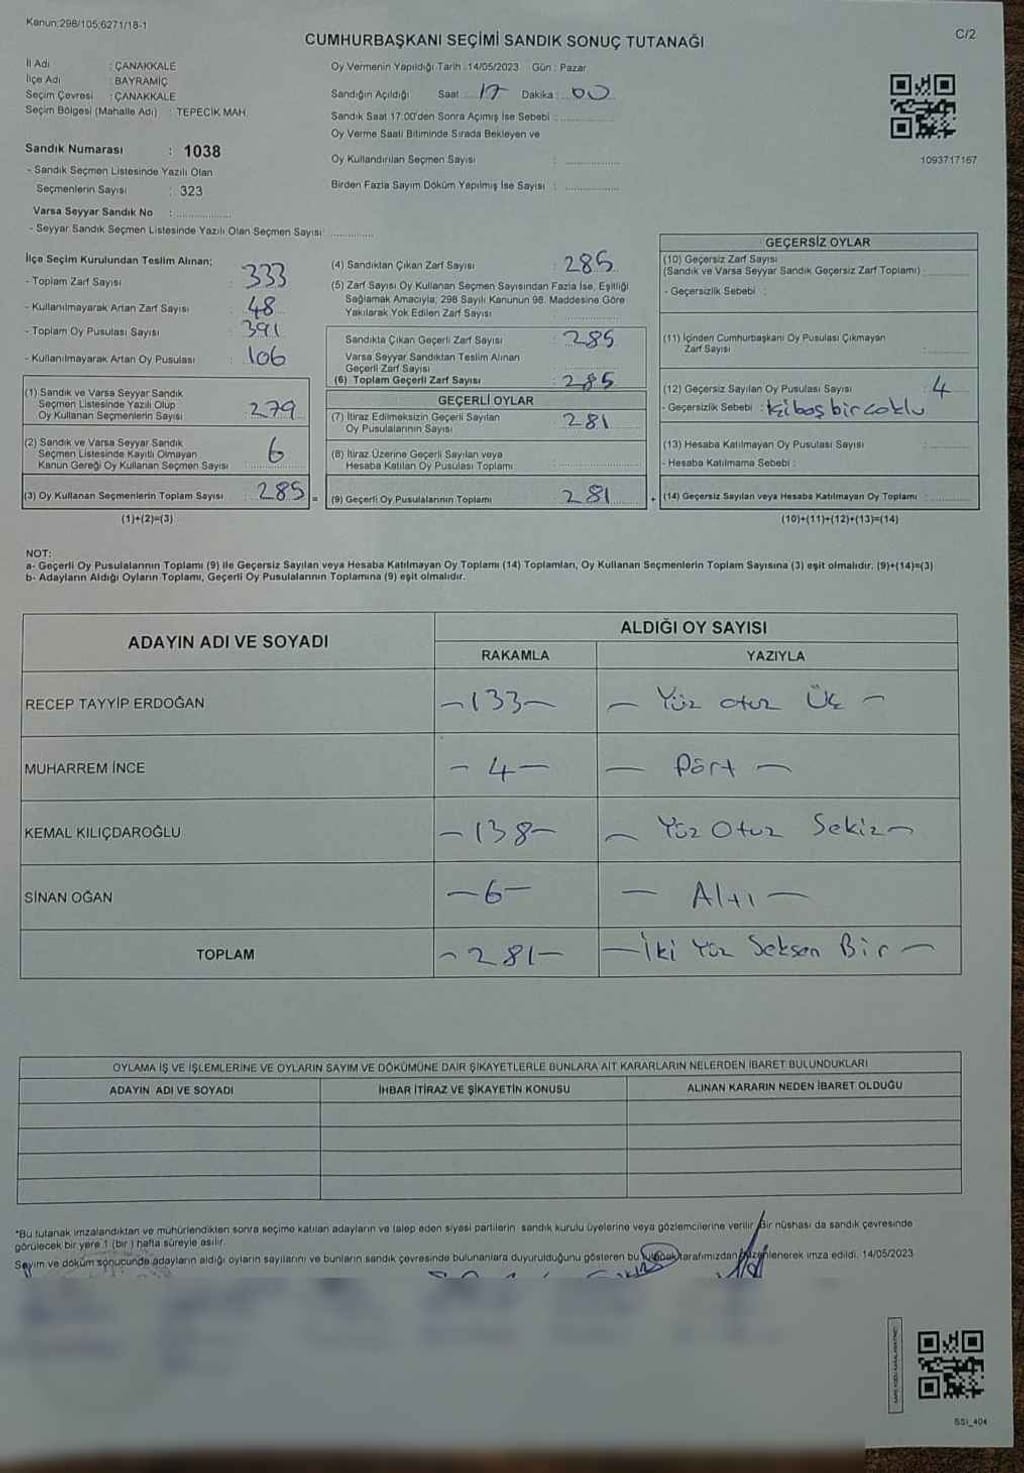 Kanun:298/105;6271/18-1
C/2
CUMHURBAŞKANI SEÇİMİ SANDIK SONUÇ TUTANAĞI
İl Adı : ÇANAKKALE
İlçe Adı : BAYRAMİÇ
Seçim Çevresi : ÇANAKKALE
Seçim Bölgesi (Mahalle Adı) : TEPECİK MAH.
Oy Vermenin Yapıldığı Tarih :14/05/2023 Gün : Pazar
Sandığın Açıldığı Saat : 17 Dakika : 00
Sandık Saat 17:00'den Sonra Açımış İse Sebebi :
Oy Verme Saati Bitiminde Sırada Bekleyen ve
Oy Kullandırılan Seçmen Sayısı :
Birden Fazla Sayım Döküm Yapılmış İse Sayısı :
1093717167
Sandık Numarası : 1038
- Sandık Seçmen Listesinde Yazılı Olan
Seçmenlerin Sayısı : 323
Varsa Seyyar Sandık No :
- Seyyar Sandık Seçmen Listesinde Yazılı Olan Seçmen Sayısı:
İlçe Seçim Kurulundan Teslim Alınan;
- Toplam Zarf Sayısı : 333
- Kullanılmayarak Artan Zarf Sayısı : 48
- Toplam Oy Pusulası Sayısı : 391
- Kullanılmayarak Artan Oy Pusulası : 106
(1) Sandık ve Varsa Seyyar Sandık
Seçmen Listesinde Yazılı Olup
Oy Kullanan Seçmenlerin Sayısı : 279
(2) Sandık ve Varsa Seyyar Sandık
Seçmen Listesinde Kayıtlı Olmayan
Kanun Gereği Oy Kullanan Seçmen Sayısı : 6
(3) Oy Kullanan Seçmenlerin Toplam Sayısı : 285 =
(1)+(2)=(3)
(4) Sandıktan Çıkan Zarf Sayısı : 285
(5) Zarf Sayısı Oy Kullanan Seçmen Sayısından Fazla İse, Eşitliği
Sağlamak Amacıyla, 298 Sayılı Kanunun 98. Maddesine Göre
Yakılarak Yok Edilen Zarf Sayısı :
Sandıkta Çıkan Geçerli Zarf Sayısı : 285
Varsa Seyyar Sandıktan Teslim Alınan
Geçerli Zarf Sayısı :
(6) Toplam Geçerli Zarf Sayısı : 285
GEÇERLİ OYLAR
(7) İtiraz Edilmeksizin Geçerli Sayılan
Oy Pusulalarının Sayısı : 281
(8) İtiraz Üzerine Geçerli Sayılan veya
Hesaba Katılan Oy Pusulası Toplamı :
(9) Geçerli Oy Pusulalarının Toplamı : 281 +
GEÇERSİZ OYLAR
(10) Geçersiz Zarf Sayısı
(Sandık ve Varsa Seyyar Sandık Geçersiz Zarf Toplamı) :
- Geçersizlik Sebebi :
(11) İçinden Cumhurbaşkanı Oy Pusulası Çıkmayan
Zarf Sayısı :
(12) Geçersiz Sayılan Oy Pusulası Sayısı : 4
- Geçersizlik Sebebi :
(13) Hesaba Katılmayan Oy Pusulası Sayısı :
- Hesaba Katılmama Sebebi :
(14) Geçersiz Sayılan veya Hesaba Katılmayan Oy Toplamı :
(10)+(11)+(12)+(13)=(14)
NOT:
a- Geçerli Oy Pusulalarının Toplamı (9) ile Geçersiz Sayılan veya Hesaba Katılmayan Oy Toplamı (14) Toplamları, Oy Kullanan Seçmenlerin Toplam Sayısına (3) eşit olmalıdır. (9)+(14)=(3)
b- Adayların Aldığı Oyların Toplamı, Geçerli Oy Pusulalarının Toplamına (9) eşit olmalıdır.
ADAYIN ADI VE SOYADI ALDIĞI OY SAYISI
RAKAMLA YAZIYLA
RECEP TAYYİP ERDOĞAN -133- - Yüz otuz Üç -
MUHARREM İNCE - 4 - - Dört -
KEMAL KILIÇDAROĞLU -138- - Yüz Otuz Sekiz -
SİNAN OĞAN -6- - Altı -
TOPLAM -281- - İki Yüz Seksen Bir -
OYLAMA İŞ VE İŞLEMLERİNE VE OYLARIN SAYIM VE DÖKÜMÜNE DAİR ŞİKAYETLERLE BUNLARA AİT KARARLARIN NELERDEN İBARET BULUNDUKLARI
ADAYIN ADI VE SOYADI İHBAR İTİRAZ VE ŞİKAYETİN KONUSU ALINAN KARARIN NEDEN İBARET OLDUĞU
*Bu tutanak imzalandıktan ve mühürlendikten sonra seçime katılan adayların ve talep eden siyasi partilerin sandık kurulu üyelerine veya gözlemcilerine verilir. Bir nüshası da sandık çevresinde
görülecek bir yere 1 (bir ) hafta süreyle asılır.
Sayım ve döküm sonucunda adayların aldığı oyların sayılarını ve bunların sandık çevresinde bulunanlara duyurulduğunu gösteren bu tutanak tarafımızdan düzenlenerek imza edildi. 14/05/2023
SSI_404